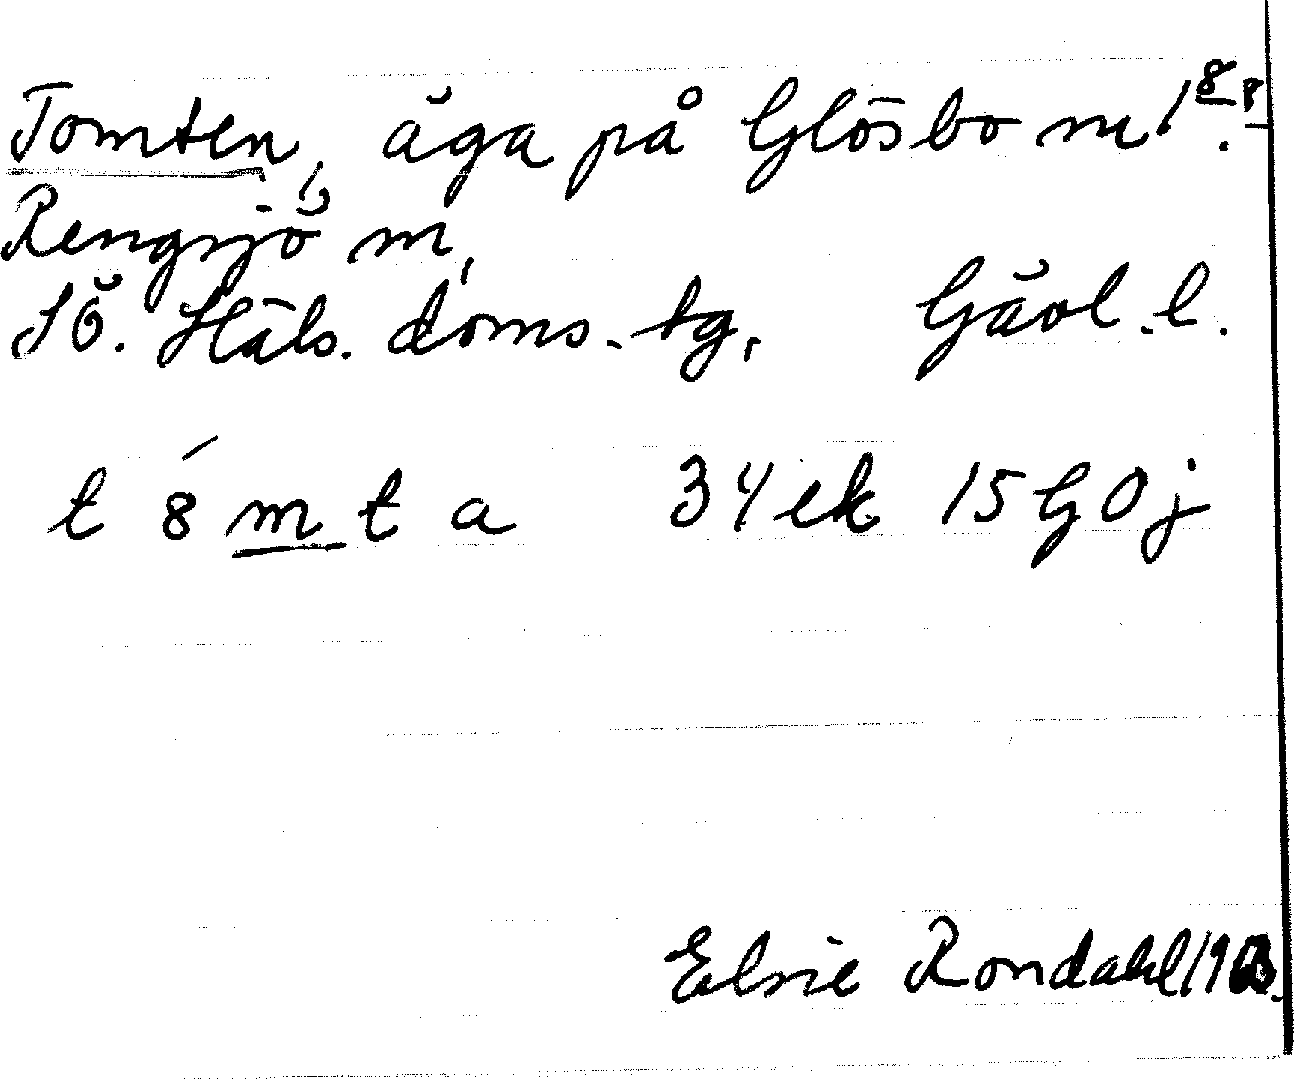 Tomten, äga på Glösbo m 1 8.8
Rengsjö sn,
Sö. Häls. doms. tg. Gävl. l.
t 8́ m t a 34 ek 15 G 0 j
Elsie Rondahl